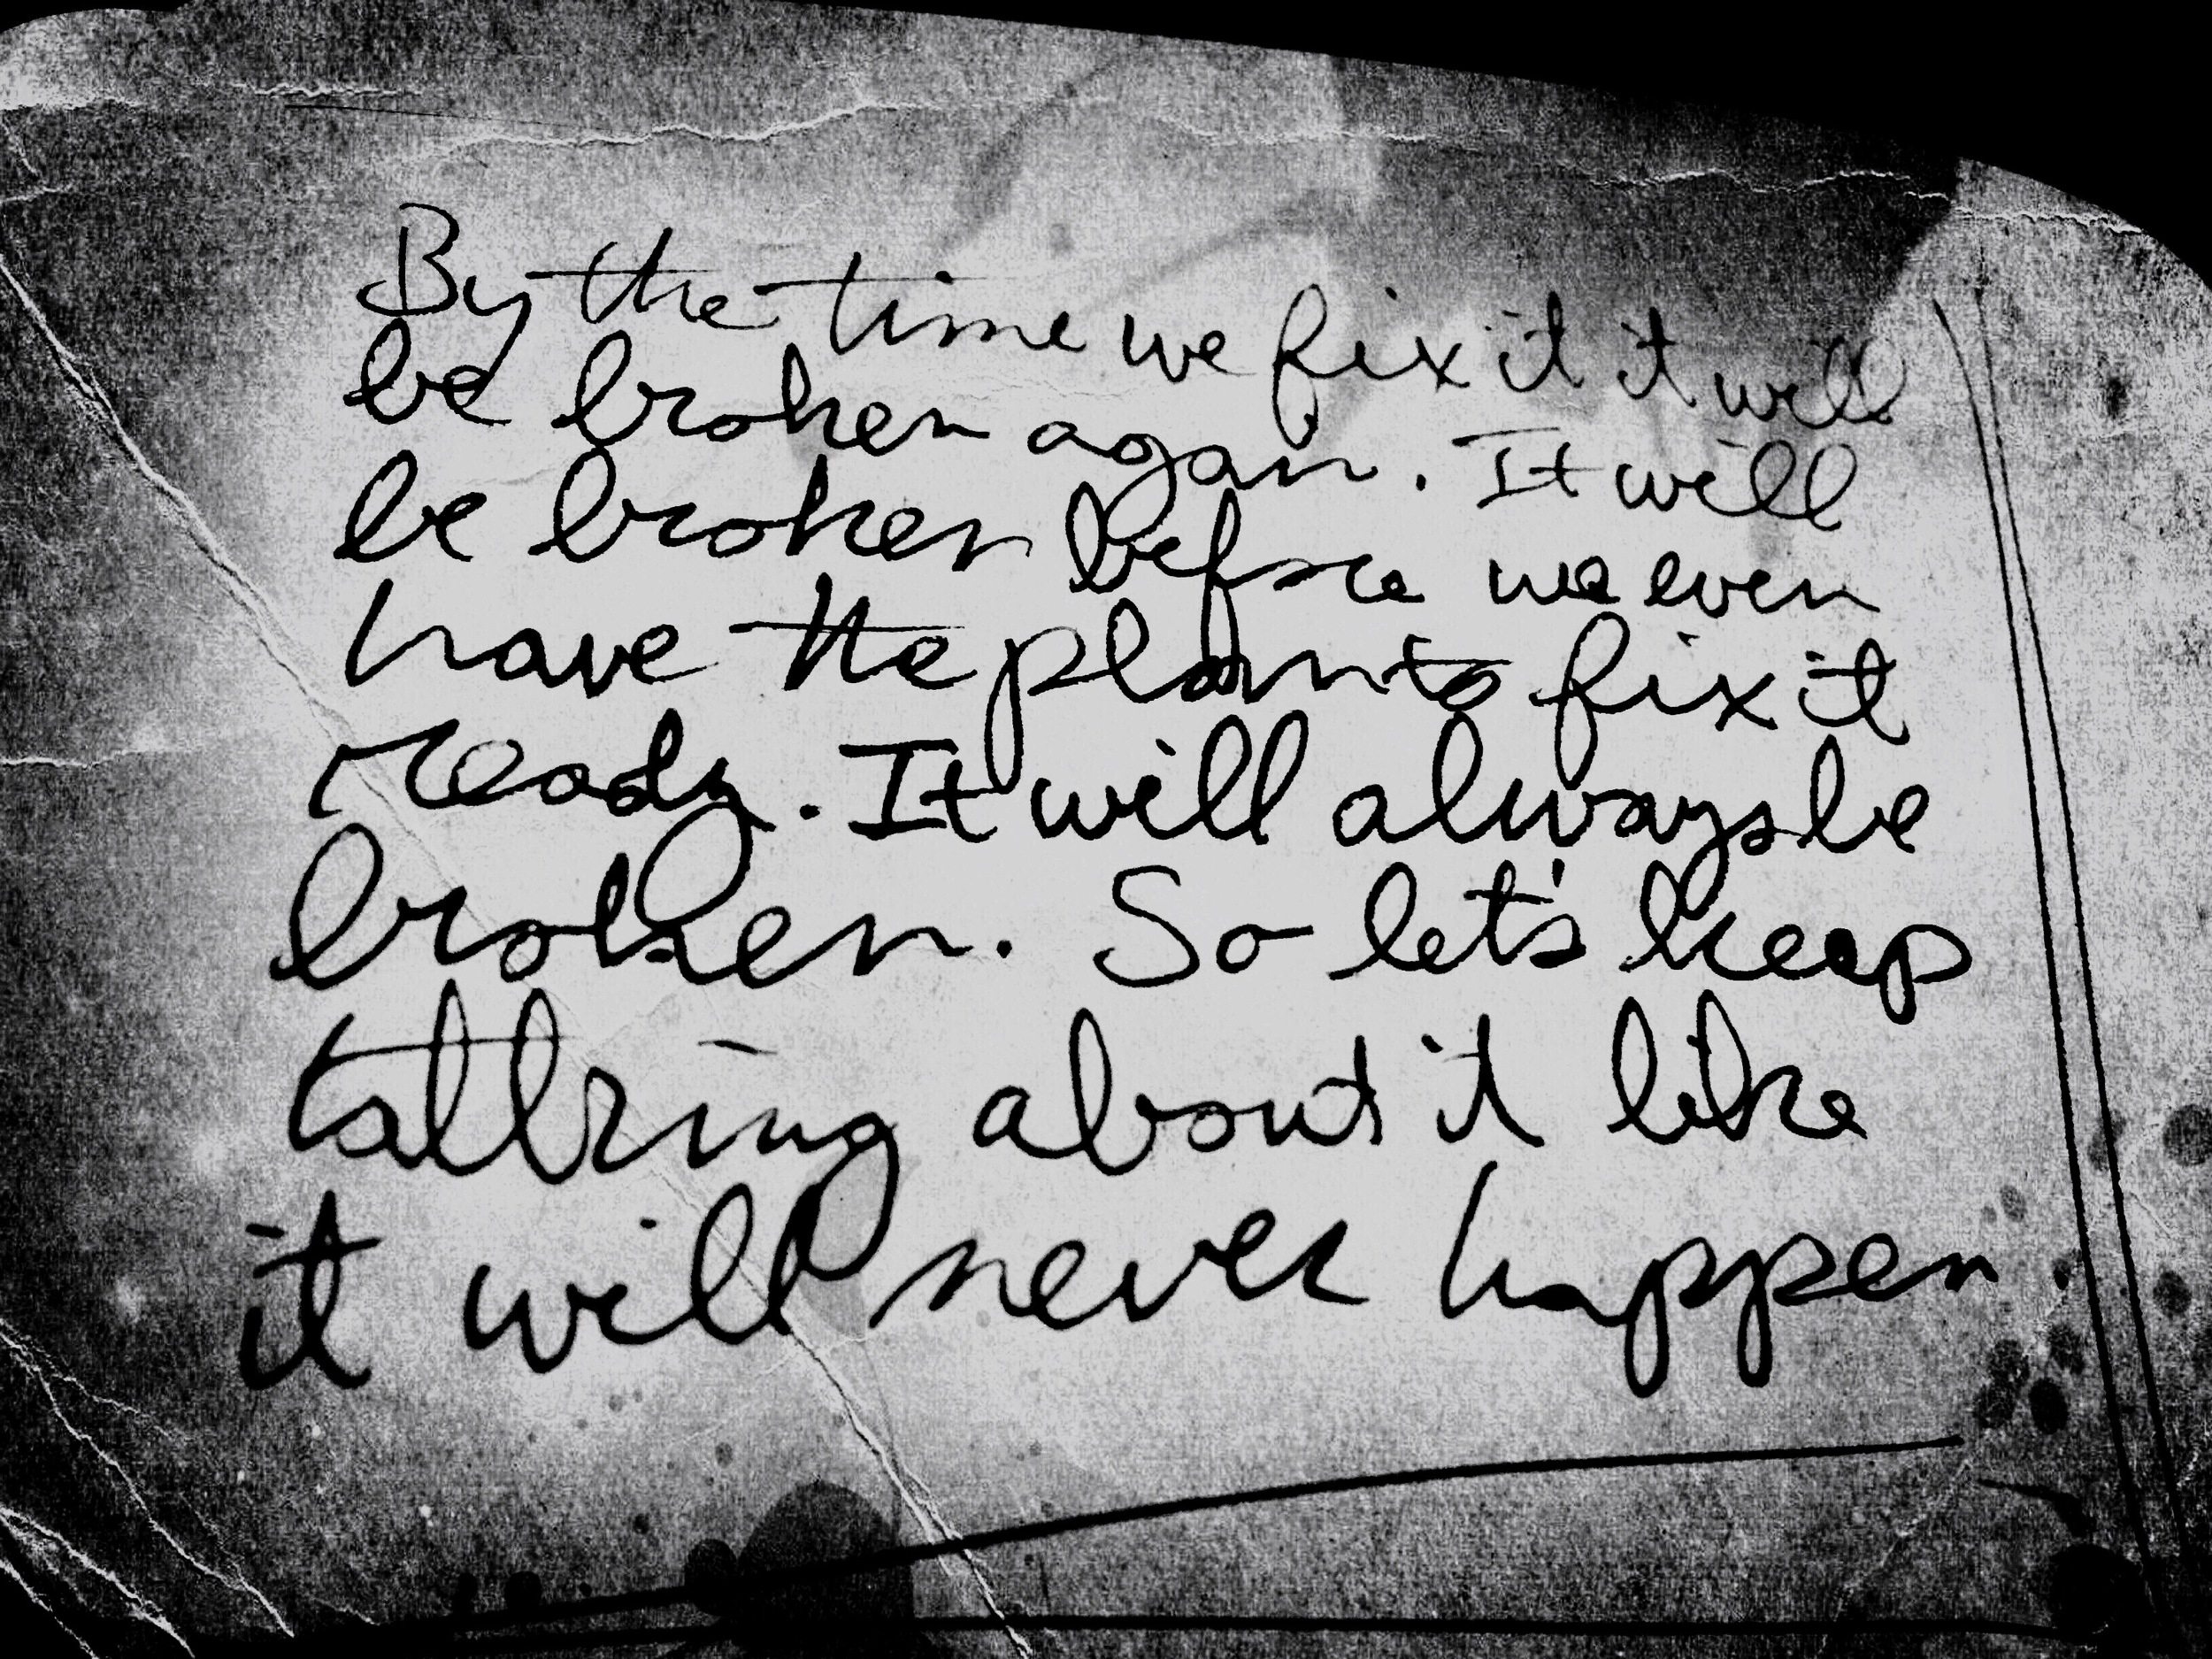 By the time we fix it it will
be broken again. It will
be broken before we even
have the plan to fix it
ready. It will always be
broken. So let's keep
talking about it like
it will never happen.